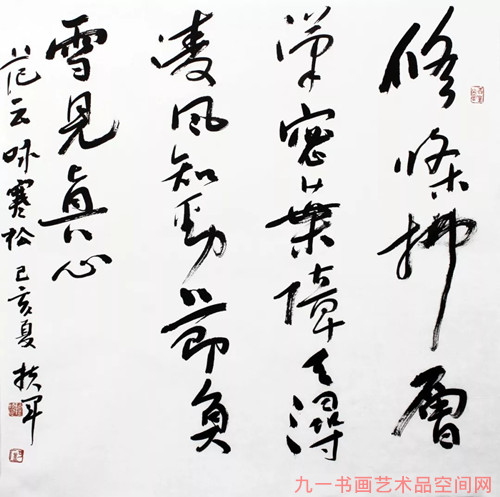 修條拂層
漢密葉障天潯
凌風知勁節負
雪見真心
范云咏寒松 己亥夏
九一书画艺术品空间网